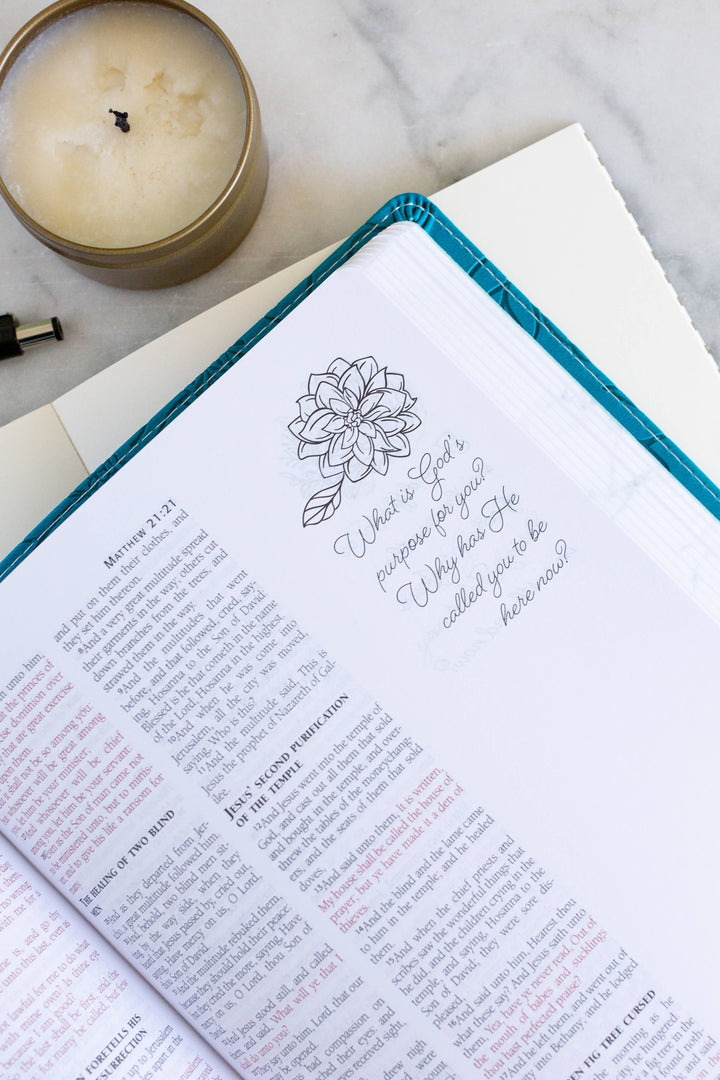 with me for a
and go thy
unto this last, even as
lawful for me to do what
with mine own? Is thine
because I am good?
the last shall be first, and the
for many be called, but few
FORETELLS HIS
up to Jerusalem
apart in the
MATTHEW 21:21
unto him,
the princes of
dominion over
that are great exercise
upon them.
it shall not be so among you:
whosoever will be great among
let him be your minister;
And whosoever will be chief
you, let him be your servant:
as the Son of man came not
ministered unto, but to minis-
and to give his life a ransom for
many.
THE HEALING OF TWO BLIND
MEN
And as they departed from Jer-
a great multitude followed him.
behold, two blind men sit-
by the way side, when they
that Jesus passed by, cried out,
Have mercy on us, O Lord,
Son of David.
And the multitude rebuked them,
because they should hold their peace:
they cried the more, saying, Have
mercy on us, O Lord, thou Son of
And Jesus stood still, and called
them, and said, What will ye that I
do unto you?
They say unto him, Lord, that our
had compassion on
their eyes: and
received sight,
drew nigh
were
and put on them their clothes, and
they set him thereon.
8And a very great multitude spread
their garments in the way; others cut
down branches from the trees, and
strawed them in the way.
9And the multitudes that went
before, and that followed, cried, say-
ing, Hosanna to the Son of David:
Blessed is he that cometh in the name
of the Lord; Hosanna in the highest.
10And when he was come into
Jerusalem, all the city was moved,
saying, Who is this?
11And the multitude said, This is
Jesus the prophet of Nazareth of Gal-
ilee.
JESUS' SECOND PURIFICATION
OF THE TEMPLE
12And Jesus went into the temple of
God, and cast out all them that sold
and bought in the temple, and over-
threw the tables of the moneychang-
ers, and the seats of them that sold
doves,
13And said unto them, It is written,
My house shall be called the house of
prayer; but ye have made it a den of
thieves.
14And the blind and the lame came
to him in the temple; and he healed
them.
15And when the chief priests and
scribes saw the wonderful things that
he did, and the children crying in the
temple, and saying, Hosanna to the
Son of David; they were sore dis-
pleased,
16And said unto him, Hearest thou
what these say? And Jesus saith unto
them, Yea; have ye never read, Out of
the mouth of babes and sucklings
thou hast perfected praise?
17And he left them, and went out of
into Bethany; and he lodged
FIG TREE CURSED
the morning as he
he hungered.
a fig tree in the
found noth-
and
What is God's
purpose for you?
Why has He
called you to be
here now?